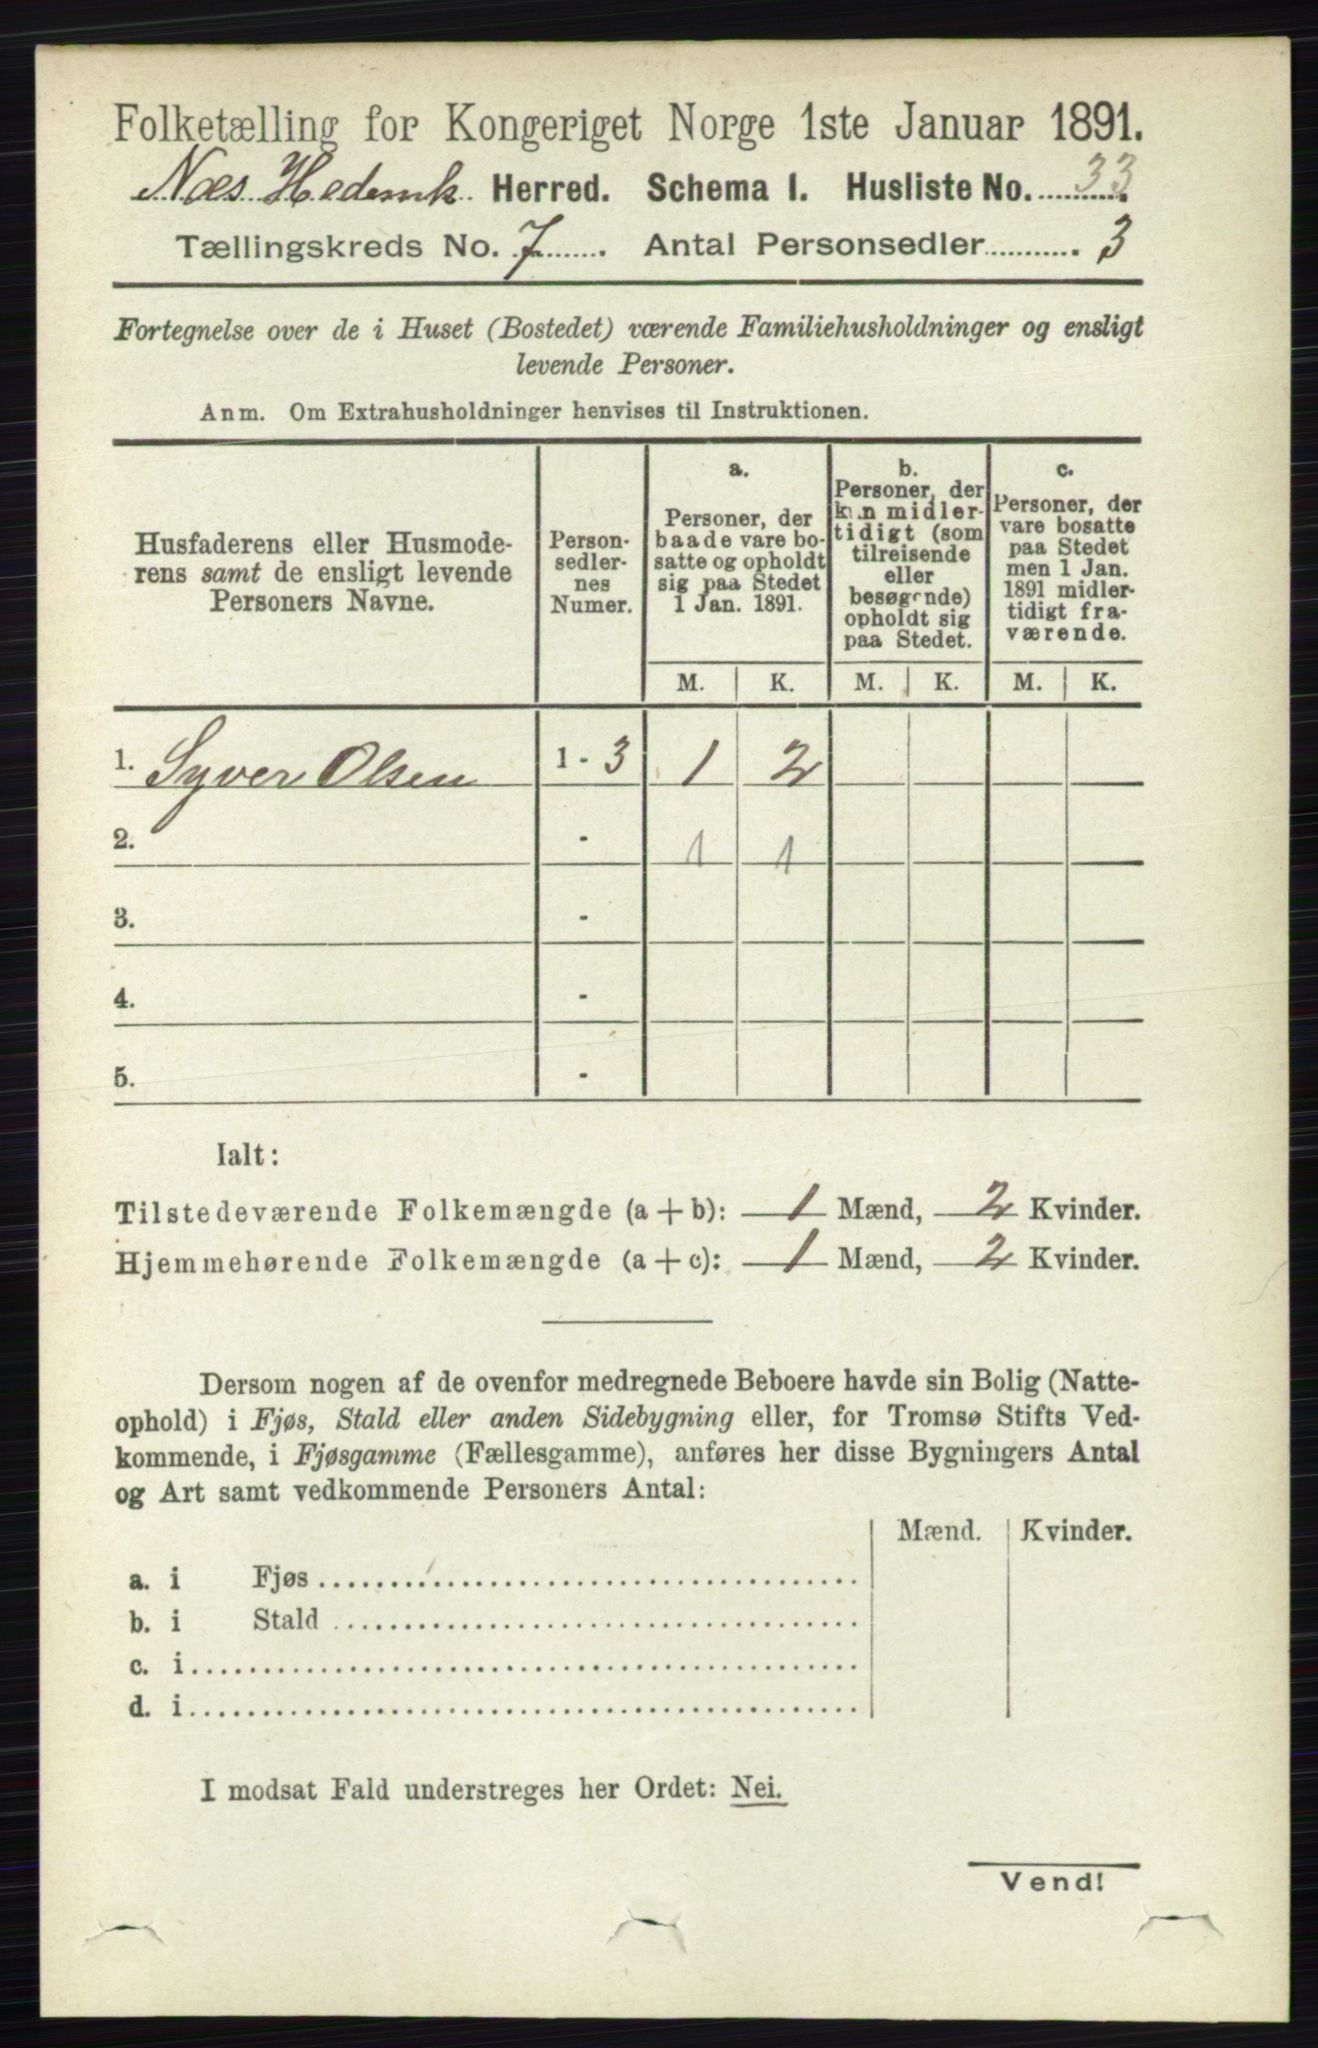 Folketælling for Kongeriget Norge 1ste Januar 1891.
Næs Hedemk Herred. Schema I. Husliste No. 33.
Tællingskreds No. 7. Antal Personsedler 3
Fortegnelse over de i Huset (Bostedet) værende Familiehusholdninger og ensligt
levende Personer.
Anm. Om Extrahusholdninger henvises til Instruktionen.
Husfaderens eller Husmode-
rens samt de ensligt levende
Personers Navne.
Person-
sedler-
nes
Numer.
a.
Personer, der
baade vare bo-
satte og opholdt
sig paa Stedet
1 Jan. 1891.
b.
Personer, der
kun midler-
tidigt (som
tilreisende
eller
besøgende)
opholdt sig
paa Stedet.
c.
Personer, der
vare bosatte
paa Stedet
men 1 Jan.
1891 midler-
tidigt fra-
værende.
M. K. M. K. M. K.
1. Syver Olsen 1 - 3 1 2
2. - 1 1
3. -
4. -
5. -
Ialt:
Tilstedeværende Folkemængde (a + b): 1 Mænd, 2 Kvinder.
Hjemmehørende Folkemængde (a + c): 1 Mænd, 2 Kvinder.
Dersom nogen af de ovenfor medregnede Beboere havde sin Bolig (Natte-
ophold) i Fjøs, Stald eller anden Sidebygning eller, for Tromsø Stifts Ved-
kommende, i Fjøsgamme (Fællesgamme), anføres her disse Bygningers Antal
og Art samt vedkommende Personers Antal:
Mænd. Kvinder.
a. i Fjøs
b. i Stald
c. i
d. i
I modsat Fald understreges her Ordet: Nei.
Vend!